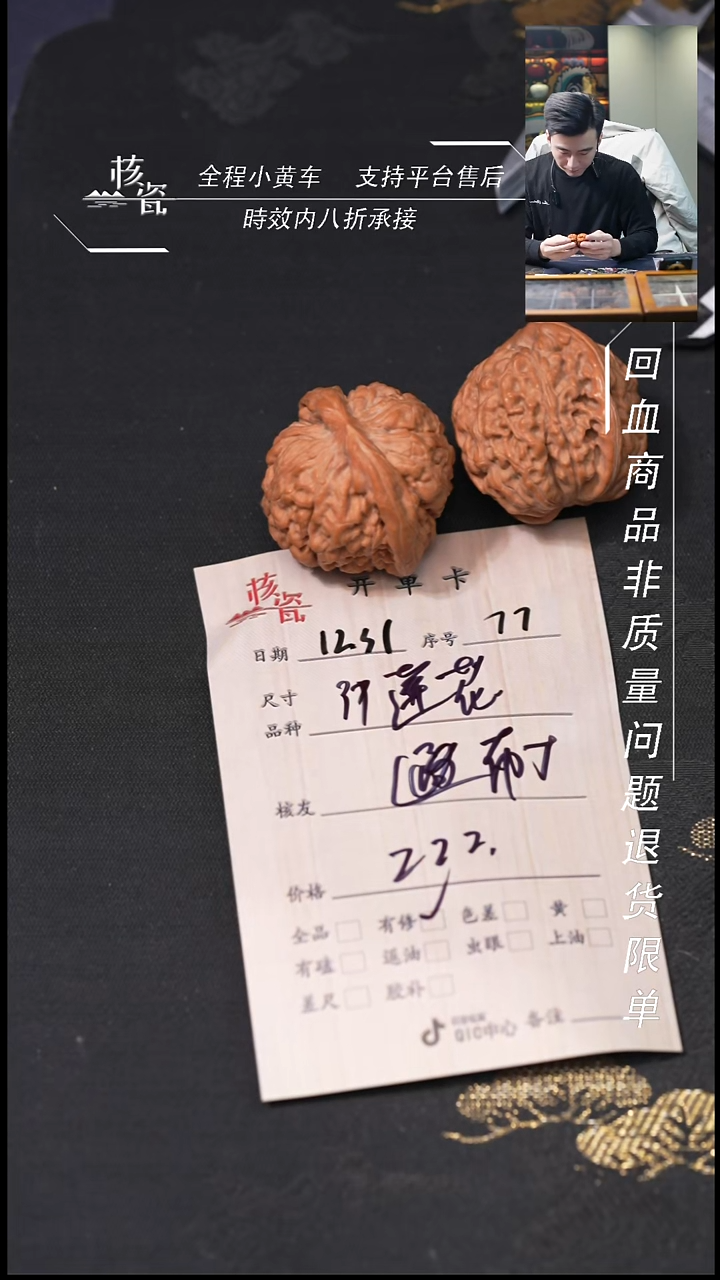 核瓷
全程小黄车 支持平台售后
時效内八折承接
回血商品非质量问题退货限单
核瓷
开单卡
日期 1231 序号 77
尺寸
品种 莲花
核友
价格 222.
全品 有修 色差 黄
有磕 返油 虫眼 上油
差尺 胶补
QIC中心 备注